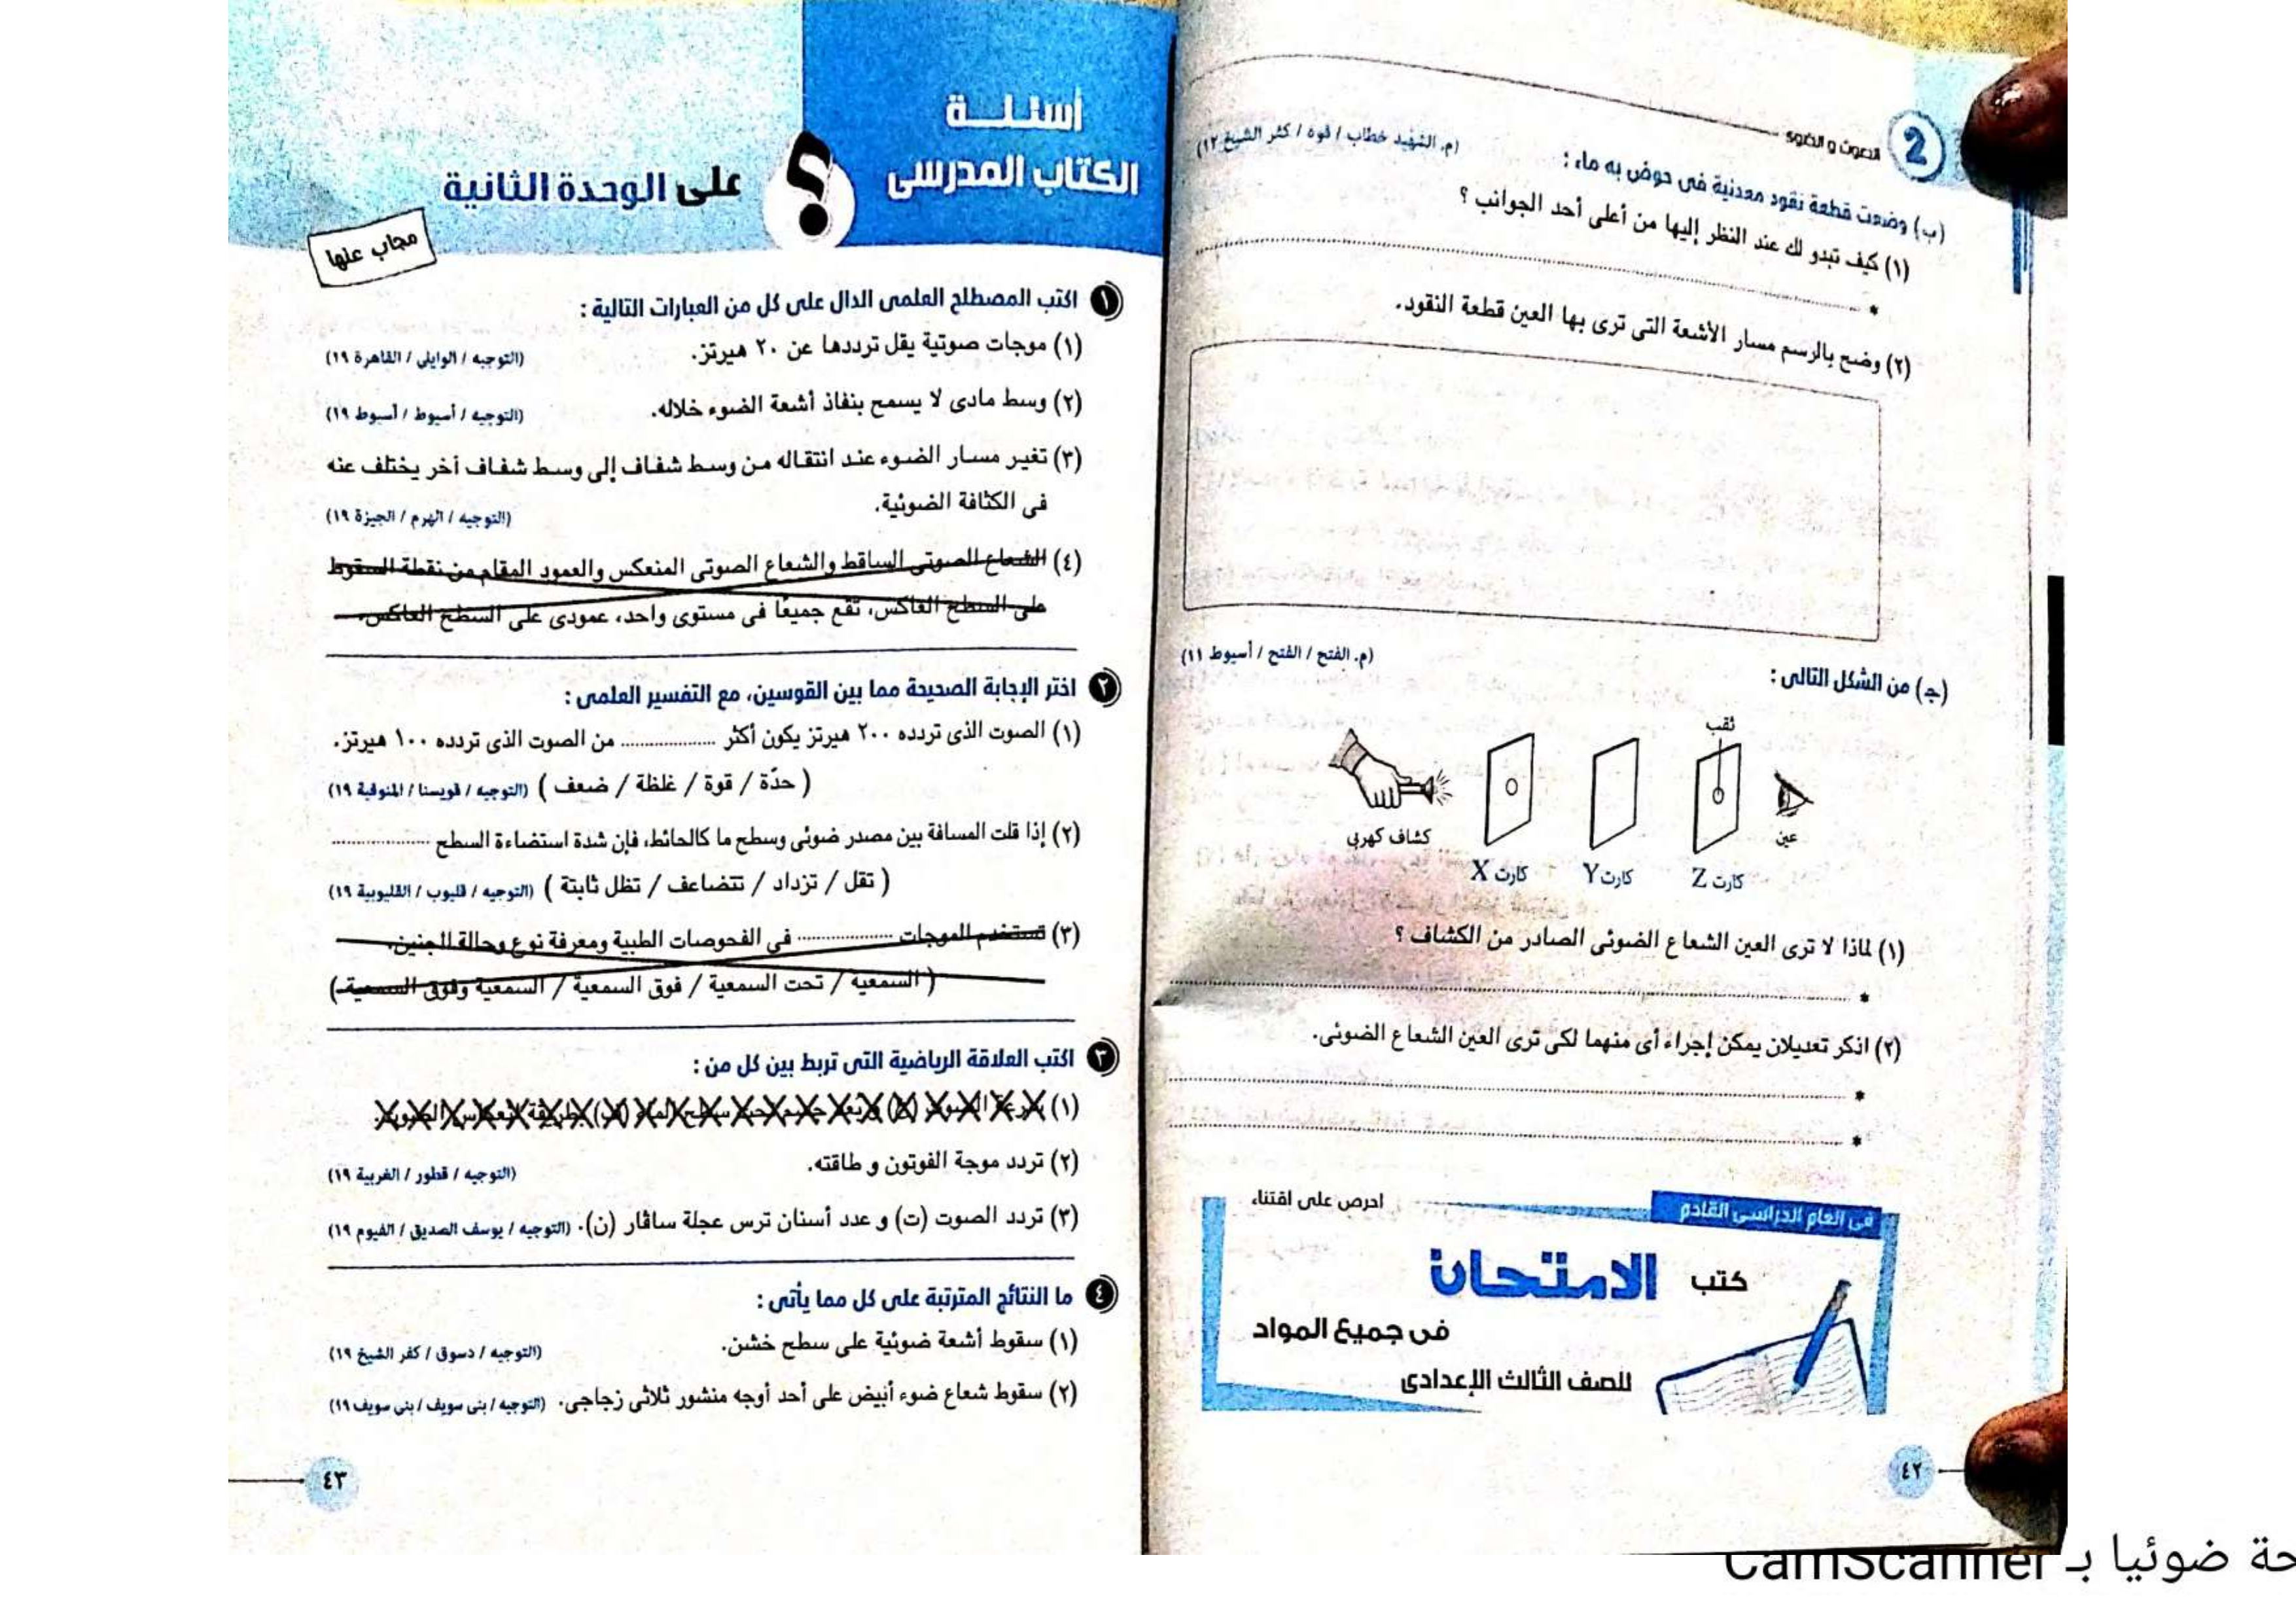 الصوت و الضوء
2
(ب) وضعت قطعة نقود معدنية فى حوض به ماء : (م. الشهيد خطاب / قوة / كفر الشيخ ١٢)
(١) كيف تبدو لك عند النظر إليها من أعلى أحد الجوانب ؟
*
(٢) وضح بالرسم مسار الأشعة التى ترى بها العين قطعة النقود.
(ج) من الشكل التالى : (م. الفتح / الفتح / أسيوط ١١)
ثقب
كشاف كهربى
كارت X
كارت Y
كارت Z
عين
(١) لماذا لا ترى العين الشعاع الضوئى الصادر من الكشاف ؟
*
(٢) اذكر تعديلان يمكن إجراء أى منهما لكى ترى العين الشعاع الضوئى.
*
*
فى العام الدراسى القادم
احرص على اقتناء
كتب الامتحان
فى جميع المواد
للصف الثالث الإعدادى
٤٢
أسئلة
الكتاب المدرسى
على الوحدة الثانية
؟
مجاب عنها
١ اكتب المصطلح العلمى الدال على كل من العبارات التالية :
(١) موجات صوتية يقل ترددها عن ٢٠ هيرتز. (التوجيه / الوايلى / القاهرة ١٩)
(٢) وسط مادى لا يسمح بنفاذ أشعة الضوء خلاله. (التوجيه / أسيوط / أسيوط ١٩)
(٣) تغير مسار الضوء عند انتقاله من وسط شفاف إلى وسط شفاف آخر يختلف عنه
فى الكثافة الضوئية. (التوجيه / الهرم / الجيزة ١٩)
(٤) الشعاع الصوتى الساقط والشعاع الصوتى المنعكس والعمود المقام من نقطة السقوط
على السطح العاكس، تقع جميعًا فى مستوى واحد، عمودى على السطح العاكس.
٢ اختر الإجابة الصحيحة مما بين القوسين، مع التفسير العلمى :
(١) الصوت الذى تردده ٢٠٠ هيرتز يكون أكثر ................ من الصوت الذى تردده ١٠٠ هيرتز.
( حدّة / قوة / غلظة / ضعف ) (التوجيه / قويسنا / المنوفية ١٩)
(٢) إذا قلت المسافة بين مصدر ضوئى وسطح ما كالحائط، فإن شدة استضاءة السطح ................
( تقل / تزداد / تتضاعف / تظل ثابتة ) (التوجيه / قليوب / القليوبية ١٩)
(٣) تستخدم الموجات ................ فى الفحوصات الطبية ومعرفة نوع وحالة الجنين.
( السمعية / تحت السمعية / فوق السمعية / السمعية وفوق السمعية )
٣ اكتب العلاقة الرياضية التى تربط بين كل من :
(١)
(٢) تردد موجة الفوتون و طاقته. (التوجيه / قطور / الغربية ١٩)
(٣) تردد الصوت (ت) و عدد أسنان ترس عجلة ساڤار (ن). (التوجيه / يوسف الصديق / الفيوم ١٩)
٤ ما النتائج المترتبة على كل مما يأتى :
(١) سقوط أشعة ضوئية على سطح خشن. (التوجيه / دسوق / كفر الشيخ ١٩)
(٢) سقوط شعاع ضوء أبيض على أحد أوجه منشور ثلاثى زجاجى. (التوجيه / بنى سويف / بنى سويف ١٩)
٤٣
حة ضوئيا بـ CamScanner